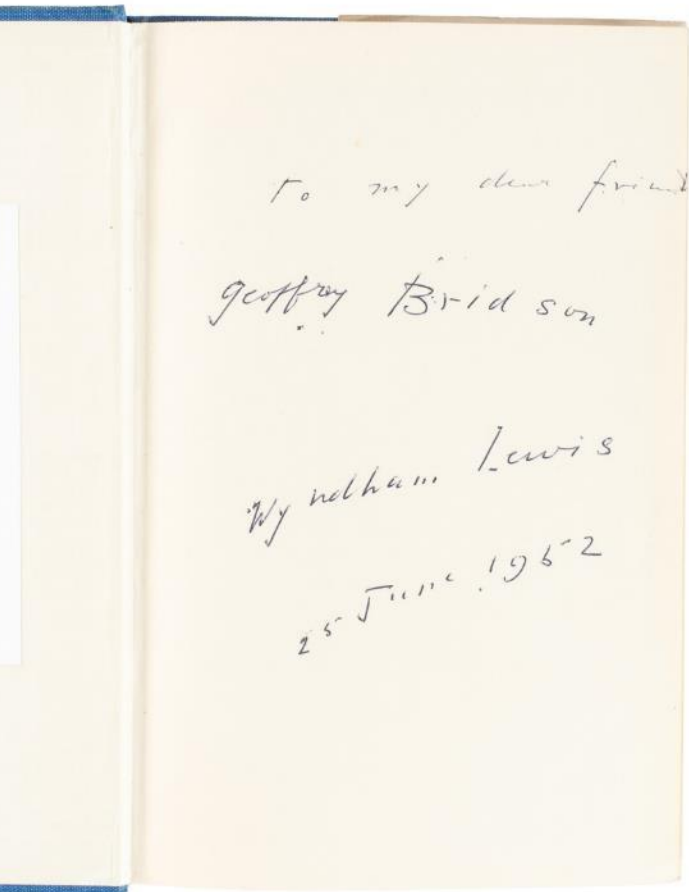 To my dear friend
Geoffrey Bridson
Wyndham Lewis
25 June 1952